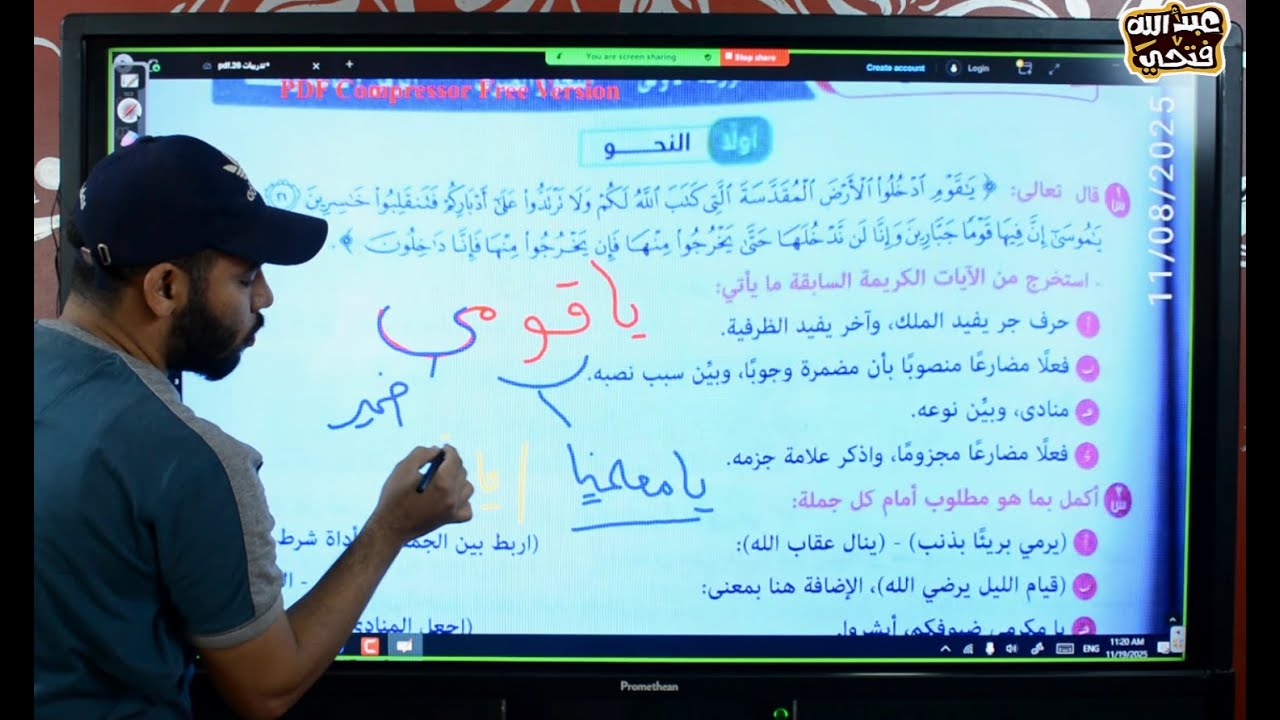 عبدالله فتحي
تدريبات 26.pdf*
You are screen sharing
Stop share
Create account
Login
PDF Compressor Free Version
11/08/2025
أولًا النحـــو
س١ قال تعالى: ﴿ يَٰقَوۡمِ ٱدۡخُلُواْ ٱلۡأَرۡضَ ٱلۡمُقَدَّسَةَ ٱلَّتِي كَتَبَ ٱللَّهُ لَكُمۡ وَلَا تَرۡتَدُّواْ عَلَىٰٓ أَدۡبَارِكُمۡ فَتَنقَلِبُواْ خَٰسِرِينَ ٢١
يَٰمُوسَىٰٓ إِنَّ فِيهَا قَوۡمٗا جَبَّارِينَ وَإِنَّا لَن نَّدۡخُلَهَا حَتَّىٰ يَخۡرُجُواْ مِنۡهَا فَإِن يَخۡرُجُواْ مِنۡهَا فَإِنَّا دَٰخِلُونَ ﴾.
- استخرج من الآيات الكريمة السابقة ما يأتي:
أ حرف جر يفيد الملك، وآخر يفيد الظرفية.
ب فعلًا مضارعًا منصوبًا بأن مضمرة وجوبًا، وبيِّن سبب نصبه.
ج منادى، وبيِّن نوعه.
د فعلًا مضارعًا مجزومًا، واذكر علامة جزمه.
س٢ أكمل بما هو مطلوب أمام كل جملة:
أ (يرمي بريئًا بذنب) - (ينال عقاب الله): (اربط بين الجم أداة شرط
ب (قيام الليل يرضي الله)، الإضافة هنا بمعنى:
ج يا مكرمي ضيوفكم، أبشروا. (اجعل المنادى
يا قومي
ضمير
يا معلمنا
يا
ENG
11:20 AM
11/19/2025
Promethean